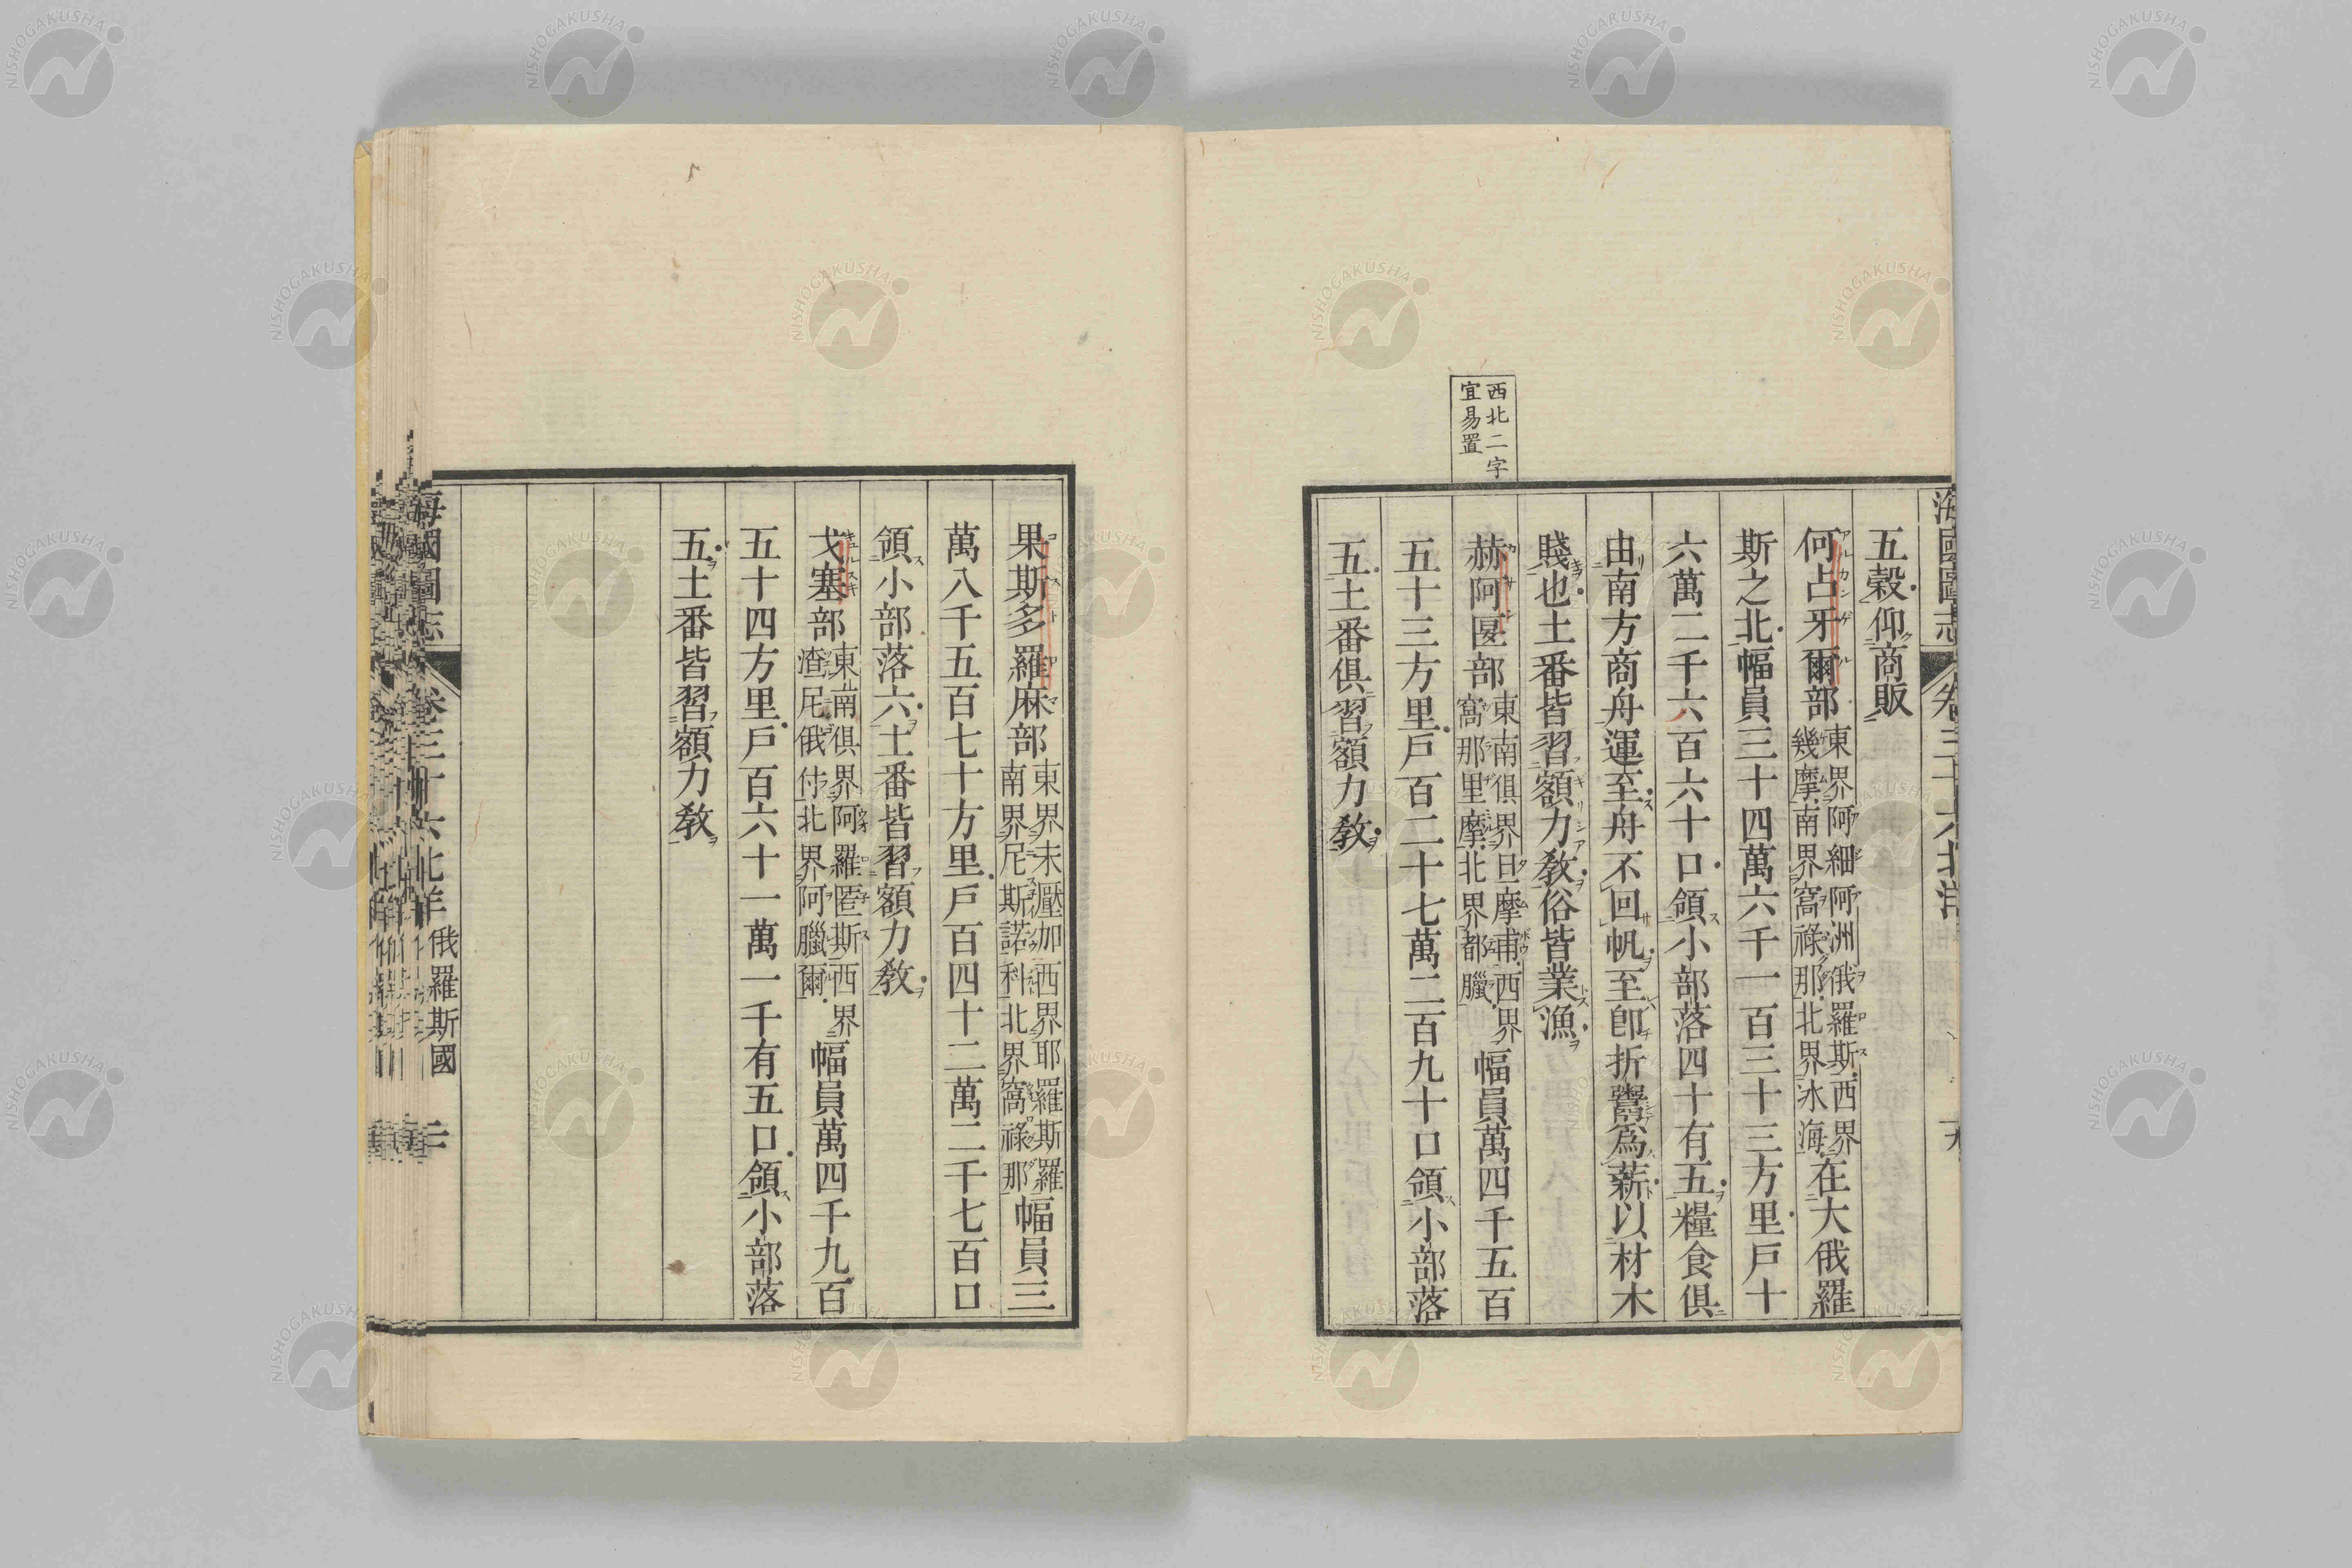 海國圖志 卷三十六 北洋
五穀仰商販
何占牙爾部東界阿細阿洲俄羅斯西界幾摩南界窩祿那北界冰海在大俄羅
斯之北幅員三十四萬六千一百三十三方里戶十
六萬二千六百六十口領小部落四十有五糧食俱
由南方商舟運至舟不回帆至卽折鬻爲薪以材木
賤也土番皆習額力敎俗皆業漁
西北二字
宜易置
赫阿匽部東南俱界旦摩甫西界窩那里摩北界都臘幅員萬四千五百
五十三方里戶百二十七萬二百九十口領小部落
五土番俱習額力敎
果斯多羅麻部東界未壓加西界耶羅斯羅南界尼斯諾科北界窩祿那幅員三
萬八千五百七十方里戶百四十二萬二千七百口
領小部落六土番皆習額力敎
戈塞部東南俱界阿羅匿斯西界渣尼俄付北界阿臘爾幅員萬四千九百
五十四方里戶百六十一萬一千有五口領小部落
五土番皆習額力敎
海國圖志 卷三十六 北洋 俄羅斯國 二
NISHOGAKUSHA